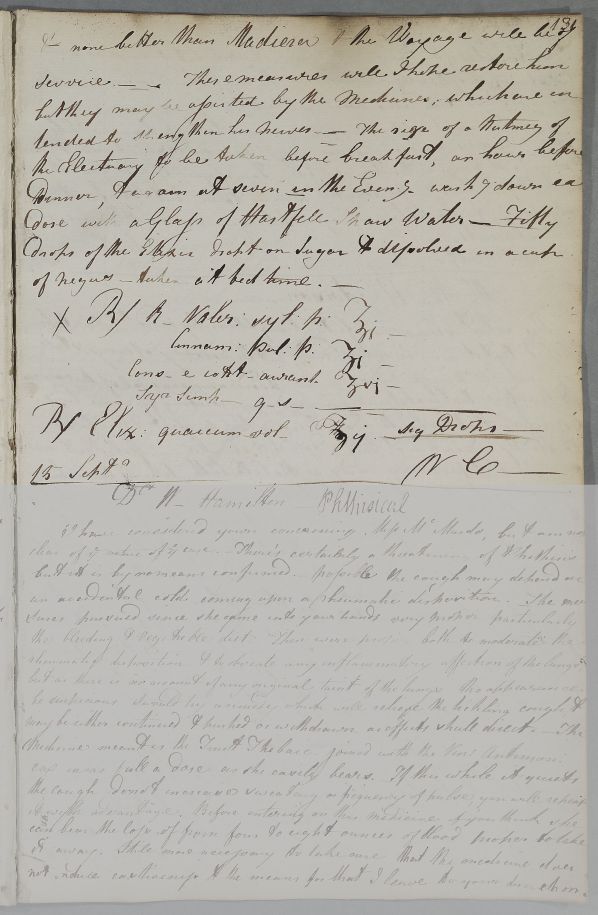 131
& none better than Madiera & the Voyage will be of
service — . These measures will I hope restore him
but they may be assisted by the Medicines, which are in
tended to strengthen his Nerves — The size of a Nutmeg of
the Electuary to be taken before breakfast, an hour before
Dinner, & again at seven in the Eveng washg down each
dose with a Glass of Hartfell Shaw Water — Fifty
drops of the Elixir dropt on Sugar & dissolved in a cup
of negus — taken at bed time. —
X R/ R — Valer: syl: p: ℥j —
Cinnam: pul: p. ʒj —
Cons — e cort — aurant ℥vj —
Syr Simp — q — s —
R/ Elix: guaiacum vol — ℥ij sig Drops —
W C —
15 Septr
Dr W — Hamilton — Phthisical
I have considered yours concerning Miss Mc but am not
clear of ye nature of ye case. There's certainly a threatening of Phthisis
but it is by no means confirmed. possible the cough may depend on
an accidental cold coming upon a rheumatic disposition. The mea
sures pursued since she came into your hands very proper particularly
the bleeding & vegetable diet. These were proper both to moderate the
rheumatic disposition & to obviate any inflammatory affection of the lungs
but as there is no account of any original taint of the lungs
be suspicious should try a medicine which will relieve the tickling cough &
may be either continued & pushed or withdrawn as effects shall direct. The
Medicine meant is the Tinct Thebaic joined with the Vin: Antimoni:
in as full a dose as she easily bears. If this while it quiets
the cough does not increase sweating or frequency of pulse, you will repeat
it with advantage. Before entering on this medicine if you think she
can bear the loss of from four to eight ounces of blood proper to take
it away. Still more necessary to take care that the medicine does
not induce costiveness & the means for that I leave to your direction.